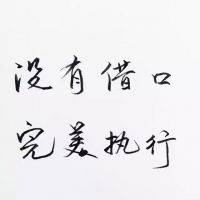 没有借口
完美执行